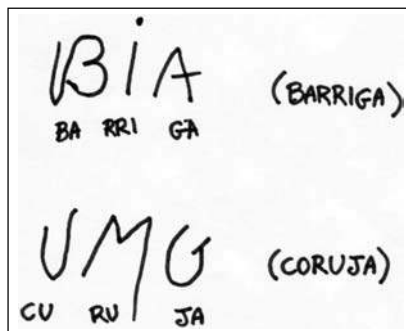 BiA (BARRIGA)
BA RRI GA
UMG (CORUJA)
CU RU JA